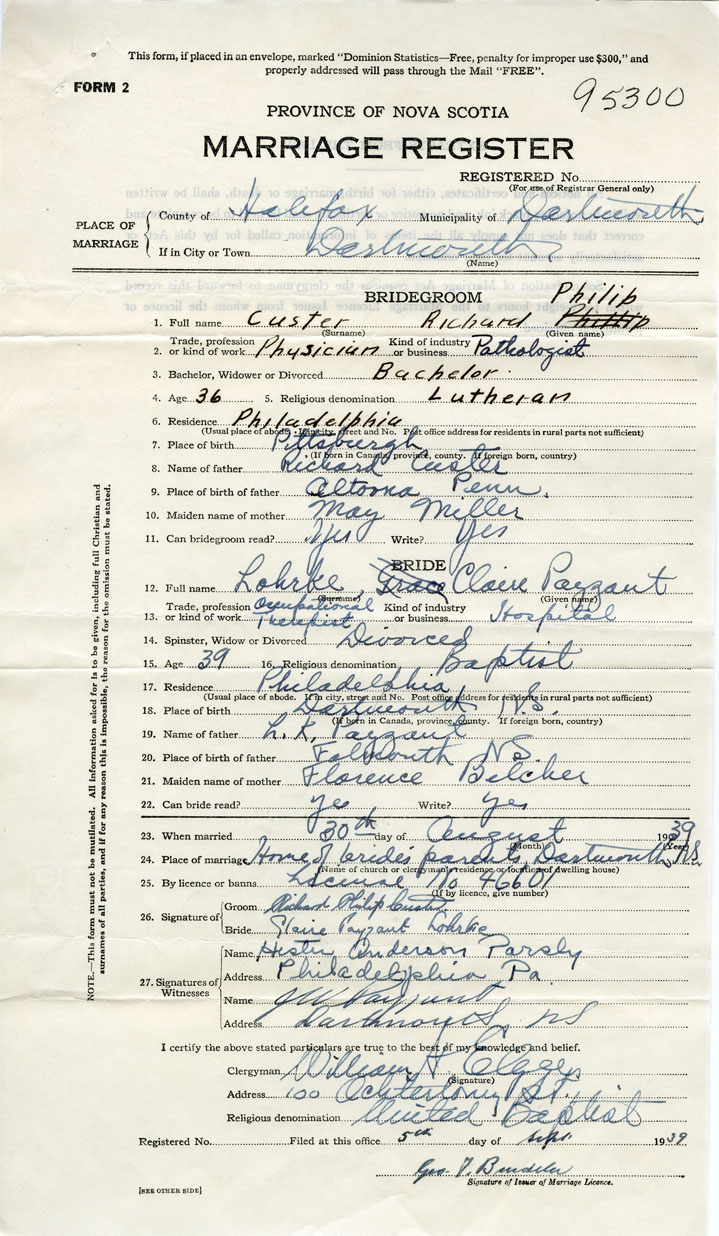 This form, if placed in an envelope, marked "Dominion Statistics—Free, penalty for improper use $300," and
properly addressed will pass through the Mail "FREE".
FORM 2
95300
PROVINCE OF NOVA SCOTIA
MARRIAGE REGISTER
REGISTERED No.
(For use of Registrar General only)
PLACE OF MARRIAGE
County of Halifax Municipality of Dartmouth
If in City or Town Dartmouth
(Name)
BRIDEGROOM Philip
1. Full name Custer Richard Phillip
(Surname) (Given name)
2. Trade, profession or kind of work Physician Kind of industry or business Pathologist
3. Bachelor, Widower or Divorced Bachelor
4. Age 36 5. Religious denomination Lutheran
6. Residence Philadelphia
(Usual place of abode. If in city, street and No. Post office address for residents in rural parts not sufficient)
7. Place of birth Pittsburgh
(If born in Canada, province, county. If foreign born, country)
8. Name of father Richard Custer
9. Place of birth of father Altoona Penn.
10. Maiden name of mother May Miller
11. Can bridegroom read? Yes Write? Yes
BRIDE
12. Full name Lohrke, Grace Claire Payzant
(Surname) (Given name)
13. Trade, profession or kind of work Occupational Therapist Kind of industry or business Hospital
14. Spinster, Widow or Divorced Divorced
15. Age 39 16. Religious denomination Baptist
17. Residence Philadelphia
(Usual place of abode. If in city, street and No. Post office address for residents in rural parts not sufficient)
18. Place of birth Dartmouth N.S.
(If born in Canada, province, county. If foreign born, country)
19. Name of father L. K. Payzant
20. Place of birth of father Falmouth N.S.
21. Maiden name of mother Florence Belcher
22. Can bride read? yes Write? yes
23. When married 30th day of August 1939
(Month) (Year)
24. Place of marriage Home of bride's parents, Dartmouth, N.S.
(Name of church or clergyman's residence or location of dwelling house)
25. By licence or banns License No 46601
(If by licence, give number)
26. Signature of
Groom Richard Philip Custer
Bride Claire Payzant Lohrke
27. Signatures of Witnesses
Name Hester Anderson Parsly
Address Philadelphia Pa.
Name Payzant
Address Dartmouth, NS
I certify the above stated particulars are true to the best of my knowledge and belief.
Clergyman William H
(Signature)
Address 100 Ochterlony St.
Religious denomination United Baptist
Registered No. Filed at this office 5th day of Sept. 1939
Geo. T.
Signature of Issuer of Marriage Licence.
[SEE OTHER SIDE]
NOTE.—This form must not be mutilated. All information asked for is to be given, including full Christian and
surnames of all parties, and if for any reason this is impossible, the reason for the omission must be stated.